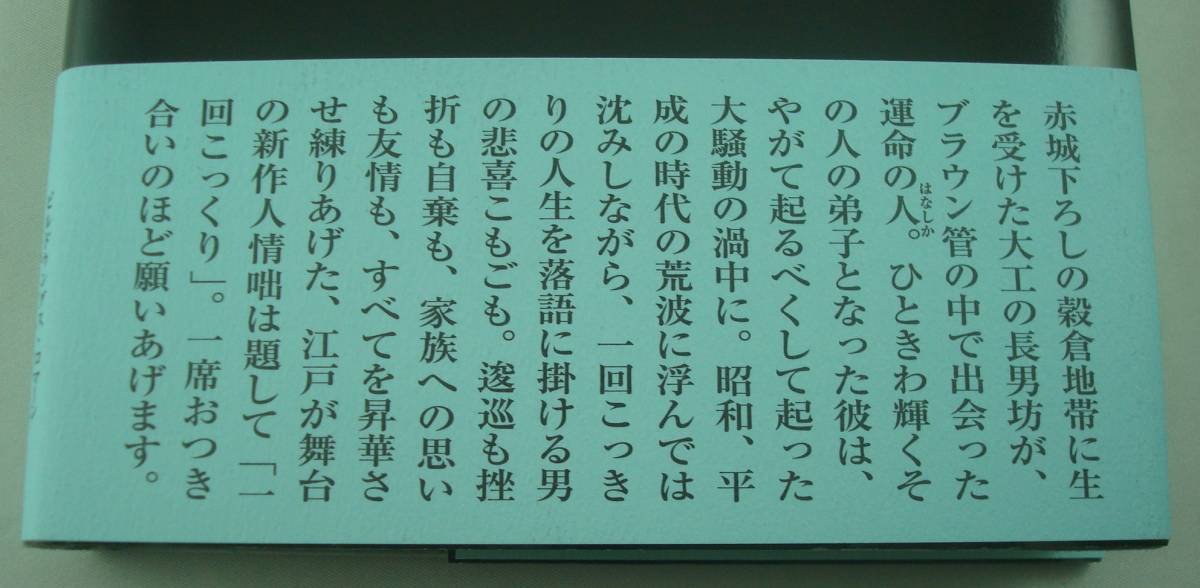 赤城下ろしの穀倉地帯に生
を受けた大工の長男坊が、
ブラウン管の中で出会った
運命の人。ひときわ輝くそ
はなしか
の人の弟子となった彼は、
やがて起るべくして起った
大騒動の渦中に。昭和、平
成の時代の荒波に浮んでは
沈みしながら、一回こっき
りの人生を落語に掛ける男
の悲喜こもごも。逡巡も挫
折も自棄も、家族への思い
も友情も、すべてを昇華さ
せ練りあげた、江戸が舞台
の新作人情咄は題して「一
回こっくり」。一席おつき
合いのほど願いあげます。